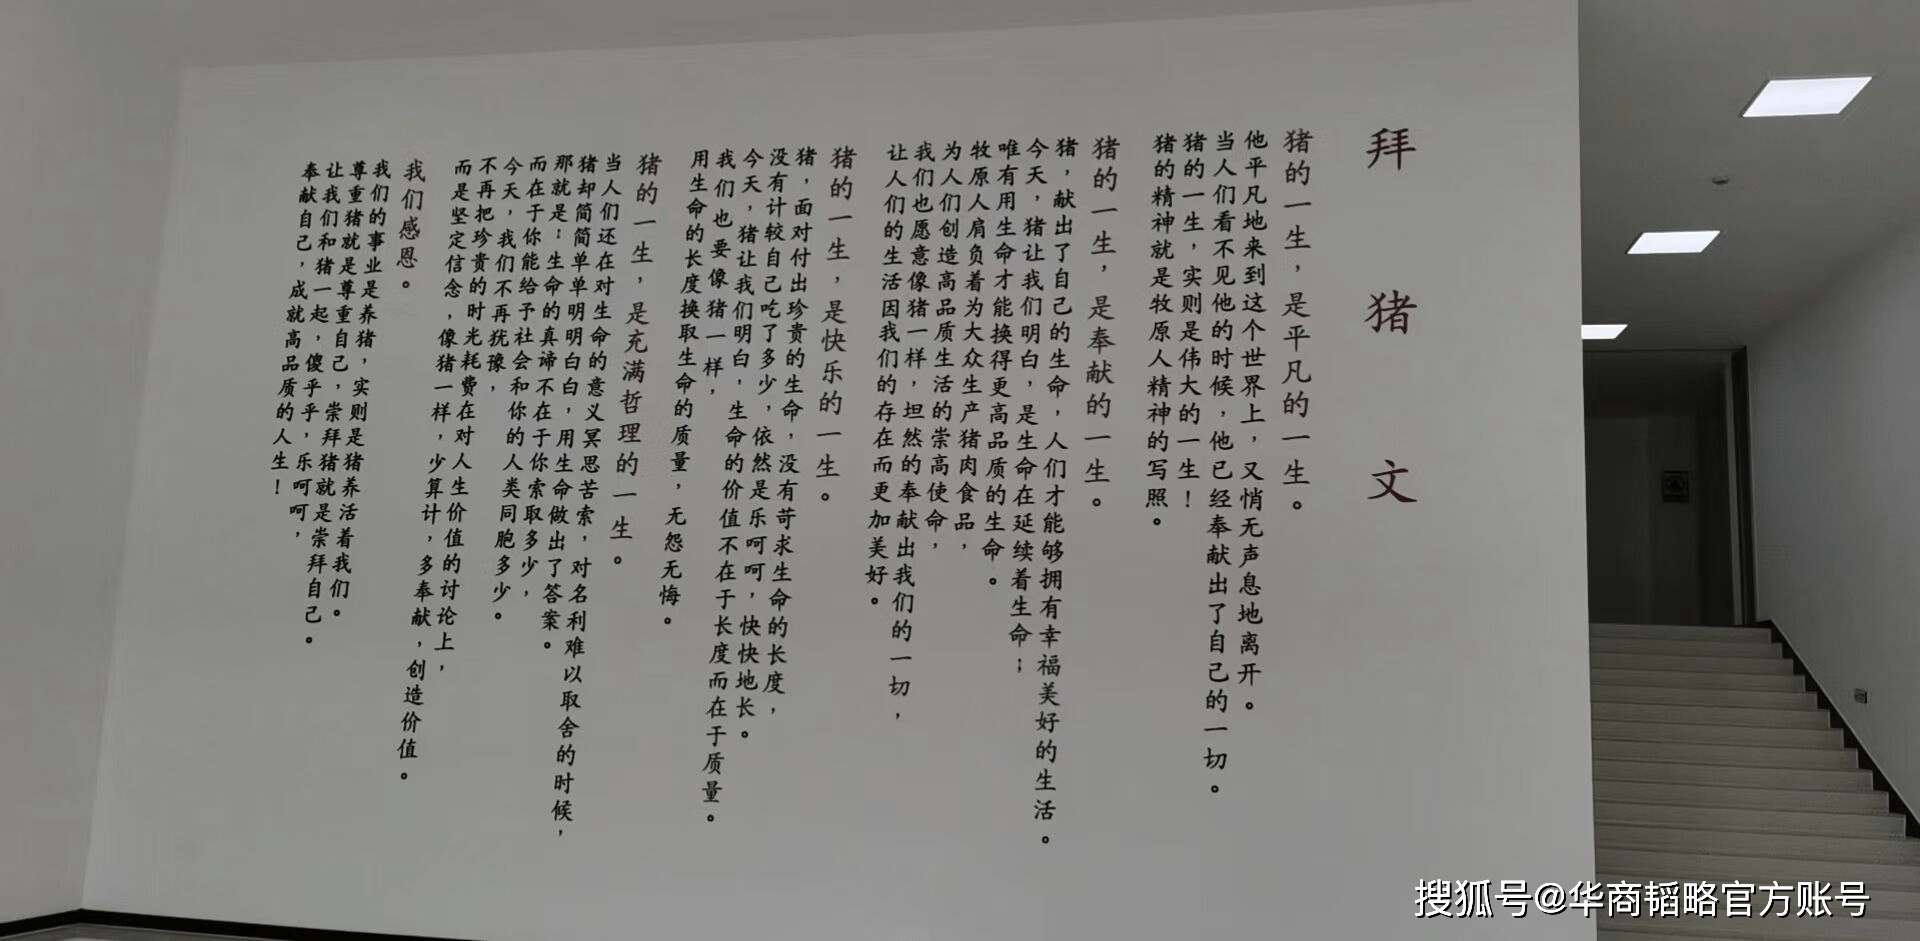 拜猪文
猪的一生，是平凡的一生。
他平凡地来到这个世界上，又悄无声息地离开。
当人们看不见他的时候，他已经奉献出了自己的一切。
猪的一生，实则是伟大的一生！
猪的精神就是牧原人精神的写照。
猪的一生，是奉献的一生。
猪，献出了自己的生命，人们才能够拥有幸福美好的生活。
今天，猪让我们明白，是生命在延续着生命；
唯有用生命才能换得更高品质的生命。
牧原人肩负着为大众生产猪肉食品，
为人们创造高品质生活的崇高使命，
我们也愿意像猪一样，坦然的奉献出我们的一切，
让人们的生活因我们的存在而更加美好。
猪的一生，是快乐的一生。
猪，面对付出珍贵的生命，没有苛求生命的长度，
没有计较自己吃了多少，依然是乐呵呵，快快地长。
今天，猪让我们明白，生命的价值不在于长度而在于质量。
我们也要像猪一样，
用生命的长度换取生命的质量，无怨无悔。
猪的一生，是充满哲理的一生。
当人们还在对生命的意义冥思苦索，对名利难以取舍的时候，
猪却简简单单明明白白，用生命做出了答案。
那就是：生命的真谛不在于你索取多少，
而在于你能给予社会和你的人类同胞多少。
今天，我们不再犹豫，
不再把珍贵的时光耗费在对人生价值的讨论上，
而是坚定信念，像猪一样，少算计，多奉献，创造价值。
我们感恩。
我们的事业是养猪，实则是猪养活着我们。
尊重猪就是尊重自己，崇拜猪就是崇拜自己。
让我们和猪一起，傻乎乎，乐呵呵，
奉献自己，成就高品质的人生！
搜狐号@华商韬略官方账号